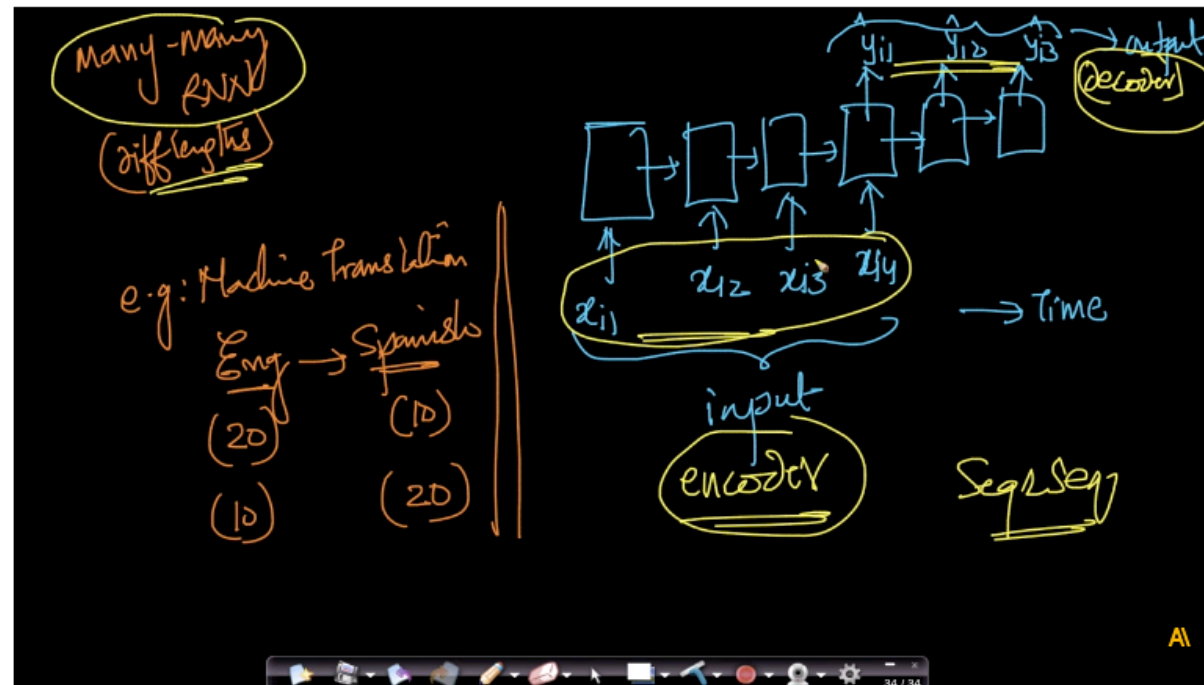 Many-Many
RNN
(diff lengths)
e.g: Machine Translation
Eng → Spanish
(20) (10)
(10) (20)
ŷi1 ŷi2 ŷi3 → output
(decoder)
xi1 xi2 xi3 xi4
→ Time
input
encoder
Seq2Seq
A\
34 / 34